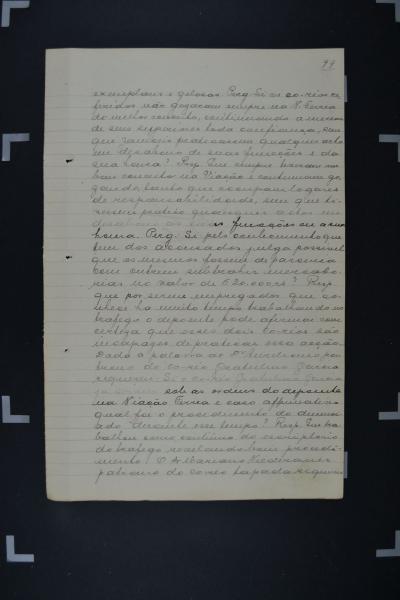 99
exemplares e zelosos. Perg. Si os co-réos re-
feridos não gozaram sempre na V. Ferrea
do melhor conceito, continuando a merecer
de seus superiores toda confiança, sem
que jamais praticassem qualquer acto
em desabono de suas funcções e da
sua honra? Resp. Que sempre tiveram
bom conceito na Viação e continuam go-
zando, tanto que occupam logares
de responsabilidade, sem que ti-
vessem praticado quaesquer actos em
desabono de suas funcções ou a sua
honra. Perg. Si pelo conhecimento que
tem dos accusados julga possivel
que os mesmos fossem de parceria
com outrem subtrahir mercado-
rias no valor de 620.000rs? Resp.
que por serem empregados que co-
nhece ha muito tempo trabalhando no
trafego o depoente pode afirmar com
certeza que esses dois co-réos são
incapazes de praticar essa acção.
Dada a palavra ao Dr.
trono do co-réo Garcia
requereu: Si o co-réo
sob as ordens do depoente
na Viação Ferrea e caso affirmativo
qual foi o procedimento do denunci-
ado durante esse tempo? Resp. Que tra-
balhou como continuo do escriptorio
do trafego, revelando bom procedi-
mento. O Dr. Mariano
patrono do co-réo Lapada requereu